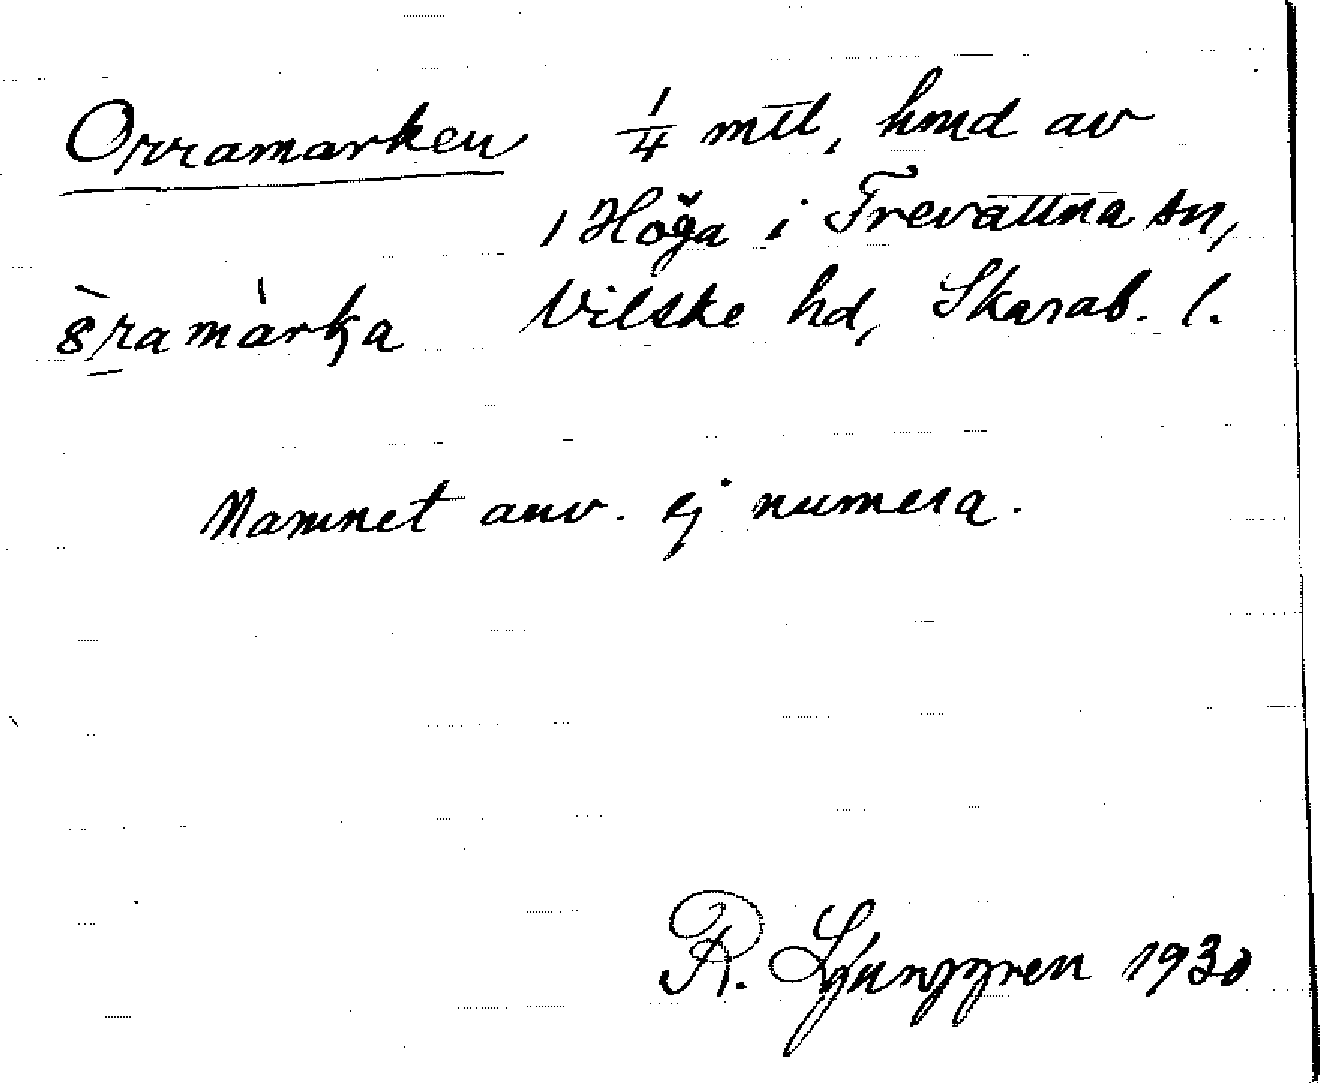 Orramarken 1/4 mtl, hmd av
1 Höga i Trevattna sn,
Vilske hd, Skarab. l.
Namnet anv. ej numera.
R. Ljunggren 1930